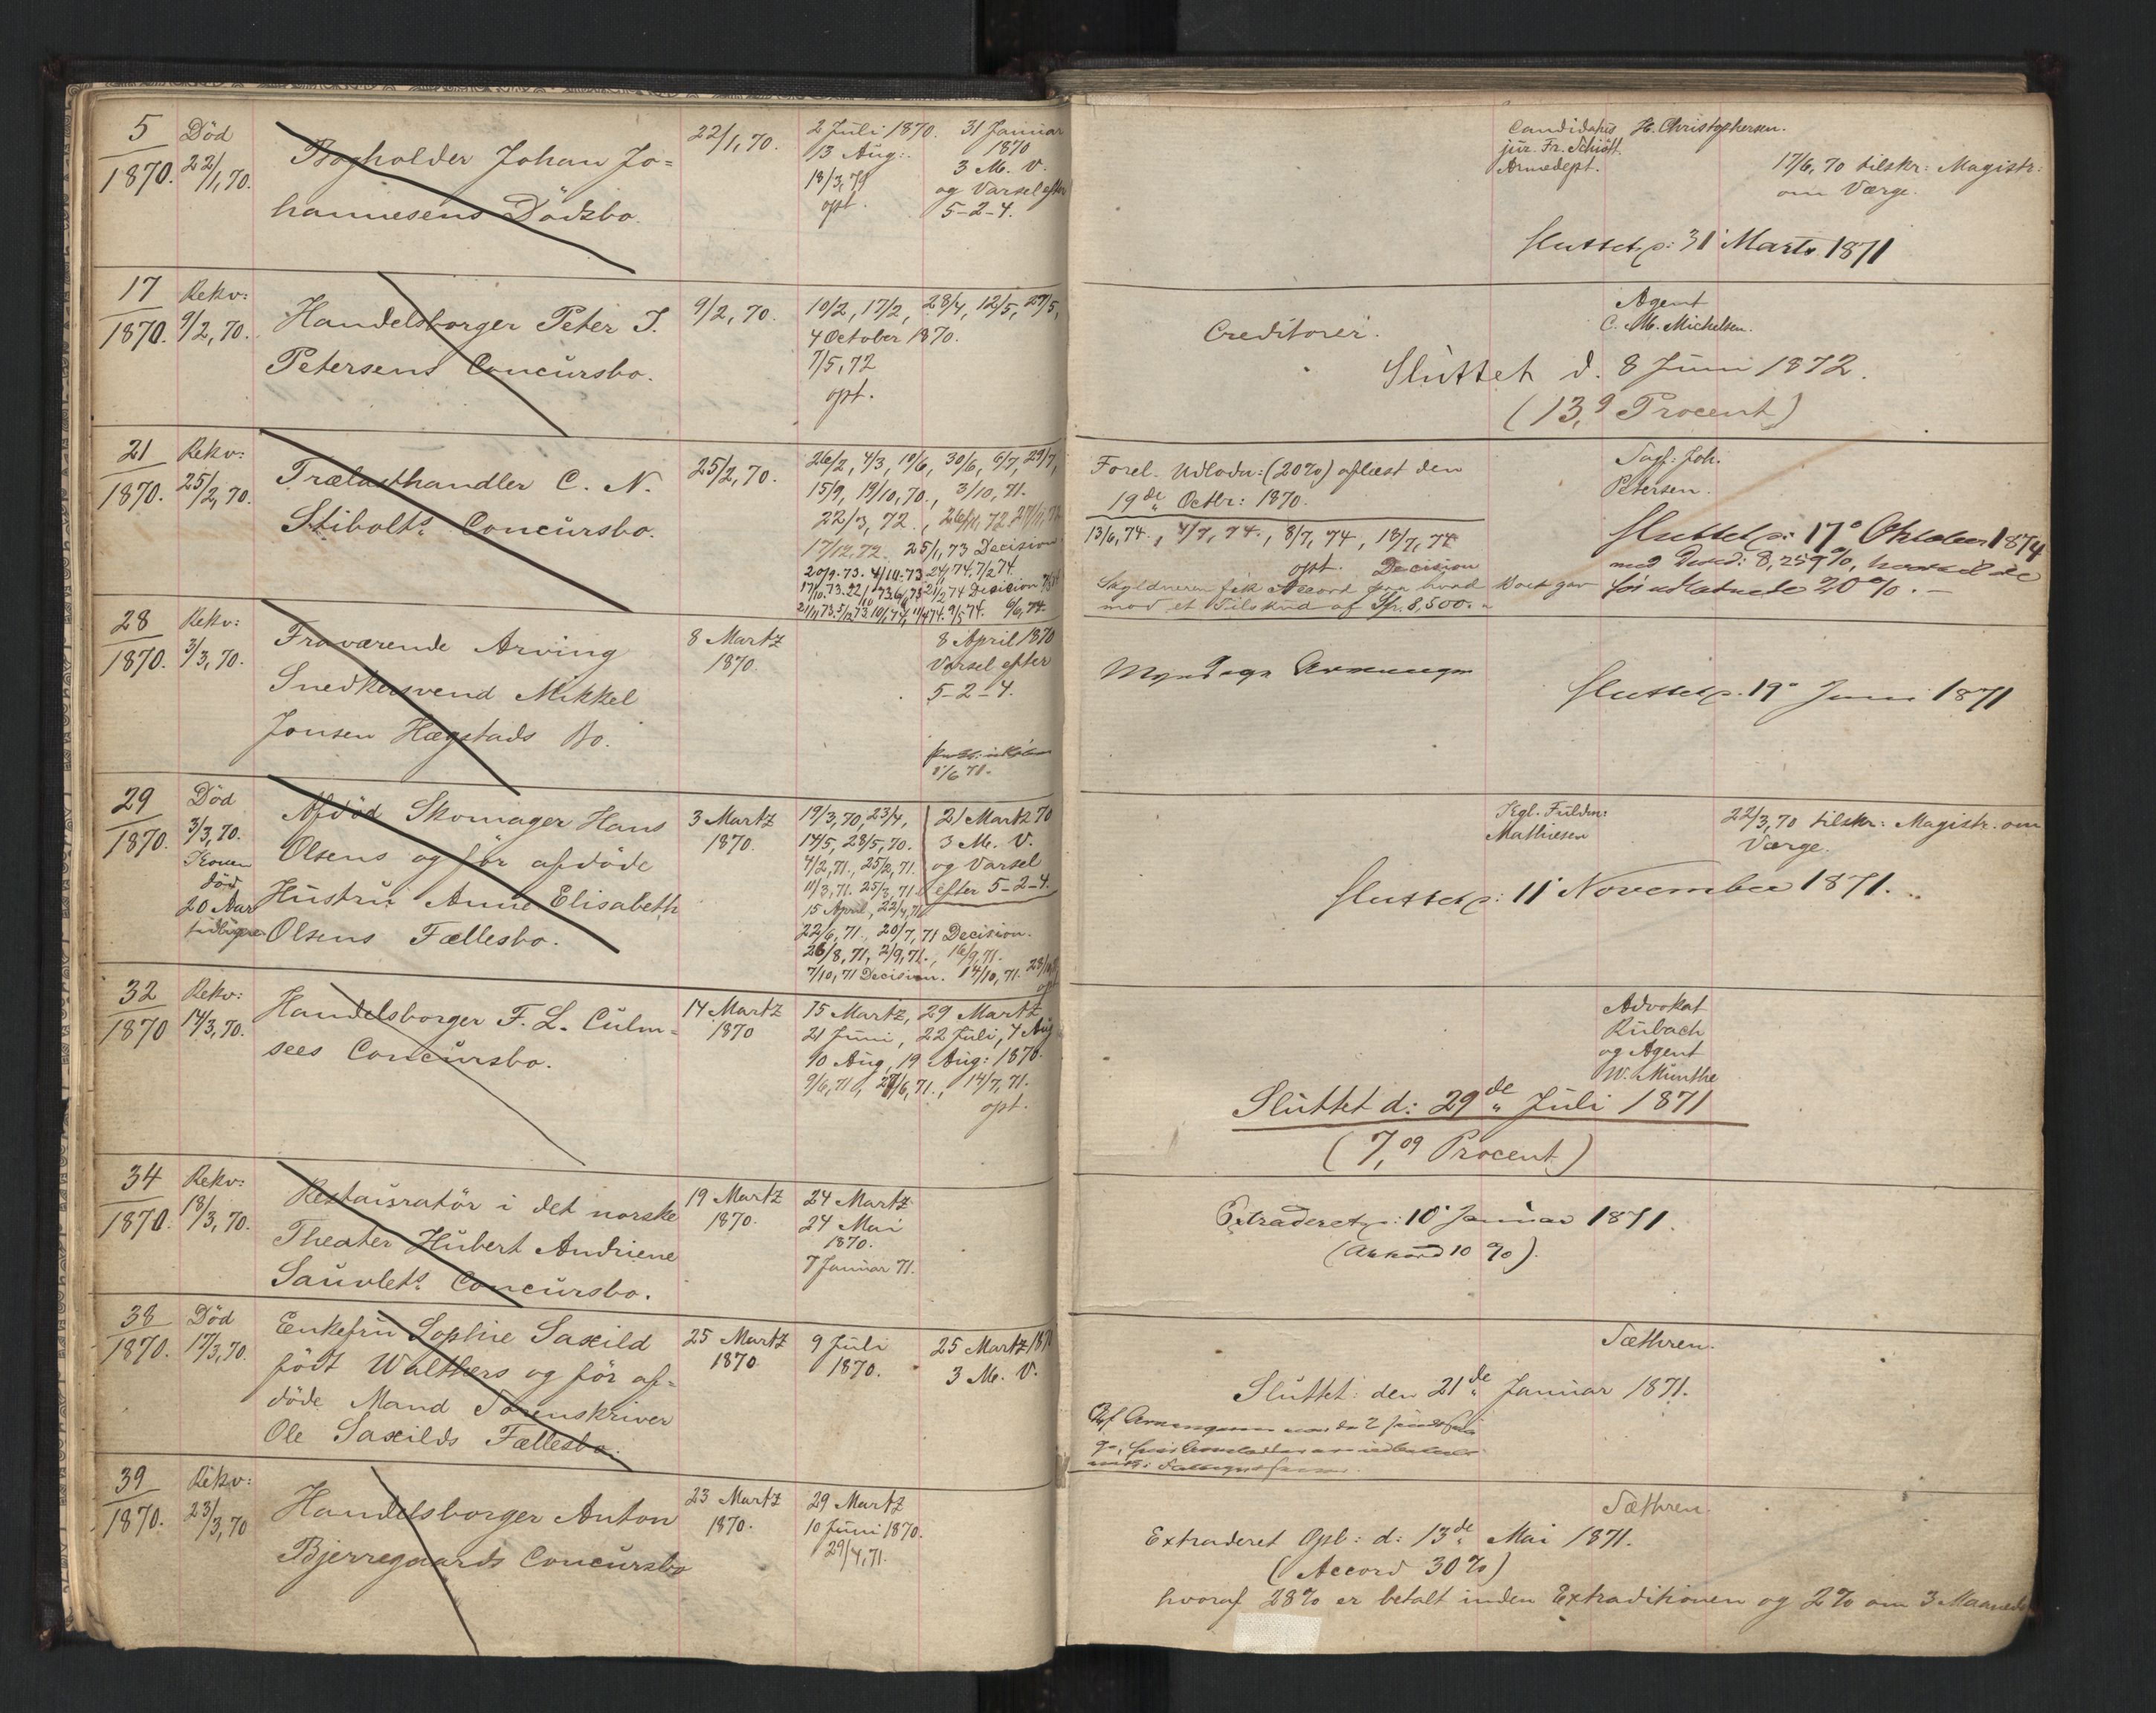 5
1870.
Död
22/1, 70.
Bogholder Johan Jo=
hannesens Dödsbo.
22/1, 70.
2 Juli 1870.
13 Aug:
18/3, 71
opt.
31 Januar
1870
3 M. V.
og Varsel efter
5-2-4.
Candidatus
jur. Fr. Schiött.
Armedept.
H. Christophersen.
17/6, 70 tilskr: Magistr:
om Værge.
Sluttet p: 31 Marts 1871
17
1870.
Rekv:
9/2, 70.
Handelsborger Peter J.
Petersens Concursbo.
9/2, 70.
10/2, 17/2, 28/4, 12/5, 27/5,
4 October 1870.
7/5, 72
opt.
Creditorer.
Agent
C. M. Michelsen.
Sluttet d. 8 Juni 1872.
(13,9 Procent)
21
1870.
Rekv:
25/2, 70.
Trælasthandler C. N.
Stibolts Concursbo.
25/2, 70.
26/2, 4/3, 10/6, 30/6, 6/7, 29/7,
15/9, 19/10, 70., 3/10, 71.
22/3, 72.
17/12, 72. 25/1, 73 Decision
Forel. Udlodn: (20%) oplæst den
19de Octbr: 1870.
13/6, 74., 4/7, 74., 8/7, 74, 18/7, 74
opt. Decision
Skyldneren fik Accord paa hvad Boet gav
mod et Tilskud af Sp. 8,500.
Sagf. Joh.
Petersen.
Sluttet p: 17 Oktober 1874
med Divid: 8,259 %, hvortil de
før udlodnede 20 %.
28
1870.
Rekv:
3/3, 70.
Fraværende Arving
Snedkersvend Mikkel
Jonsen Hægstads Bo.
8 Martz
1870.
8 April 1870
Varsel efter
5-2-4.
Myndige Arvinger
Sluttet p. 19 Juni 1871
29
1870.
Död
3/3, 70.
Konen
død
20 Aar
tidligere
Afdöd Skomager Hans
Olsens og för afdöde
Hustru Anne Elisabeth
Olsens Fællesbo.
3 Martz
1870.
19/3, 70, 23/4,
14/5, 28/5, 70.
4/2, 71., 25/2, 71.
11/3, 71. 25/3, 71.
15 April, 22/4, 71
22/6, 71., 20/7, 71 Decision.
26/8, 71, 2/9, 71., 16/9, 71.
7/10, 71 Decision. 14/10, 71.
opt
21 Martz 70
3 M. V.
og Varsel
efter 5-2-4.
Kgl. Fuldm:
Mathiesen
22/3, 70 tilskr: Magistr. om
Værge.
Sluttet p: 11 November 1871.
32
1870
Rekv:
14/3, 70.
Handelsborger F. L. Culm=
sees Concursbo.
14 Martz
1870
15 Martz, 29 Martz
21 Juni, 22 Juli, 4 Aug
10 Aug, 19 Aug: 1870.
9/6, 71, 27/6, 71., 14/7, 71.
opt.
Advokat
Rubach
og Agent
W. Munthe
Sluttet d: 29de Juli 1871
(7,09 Procent)
34
1870.
Rekv:
18/3, 70.
Restauratör i det norske
Theater Hubert Andriene
Sauvlets Concursbo.
19 Martz
1870.
24 Martz
24 Mai
1870.
7 Januar 71.
Extraderet p: 10 Januar 1871.
(Akkord 10 %).
38
1870.
Död
17/3, 70.
Enkefru Sophie Saxild
födt Walthers og för af=
döde Mand Sorenskriver
Ole Saxilds Fællesbo.
25 Martz
1870.
9 Juli
1870.
25 Martz 1870
3 M. V.
Sæthren.
Sluttet den 21de Januar 1871.
39
1870.
Rekv:
23/3, 70
Handelsborger Anton
Bjerregaards Concursbo
23 Martz
1870.
29 Martz
10 Juni 1870.
29/4, 71.
Sæthren.
Extraderet Opb: d: 13de Mai 1871.
(Accord 30 %)
hvoraf 28% er betalt inden Extraditionen og 2% om 3 Maaneder